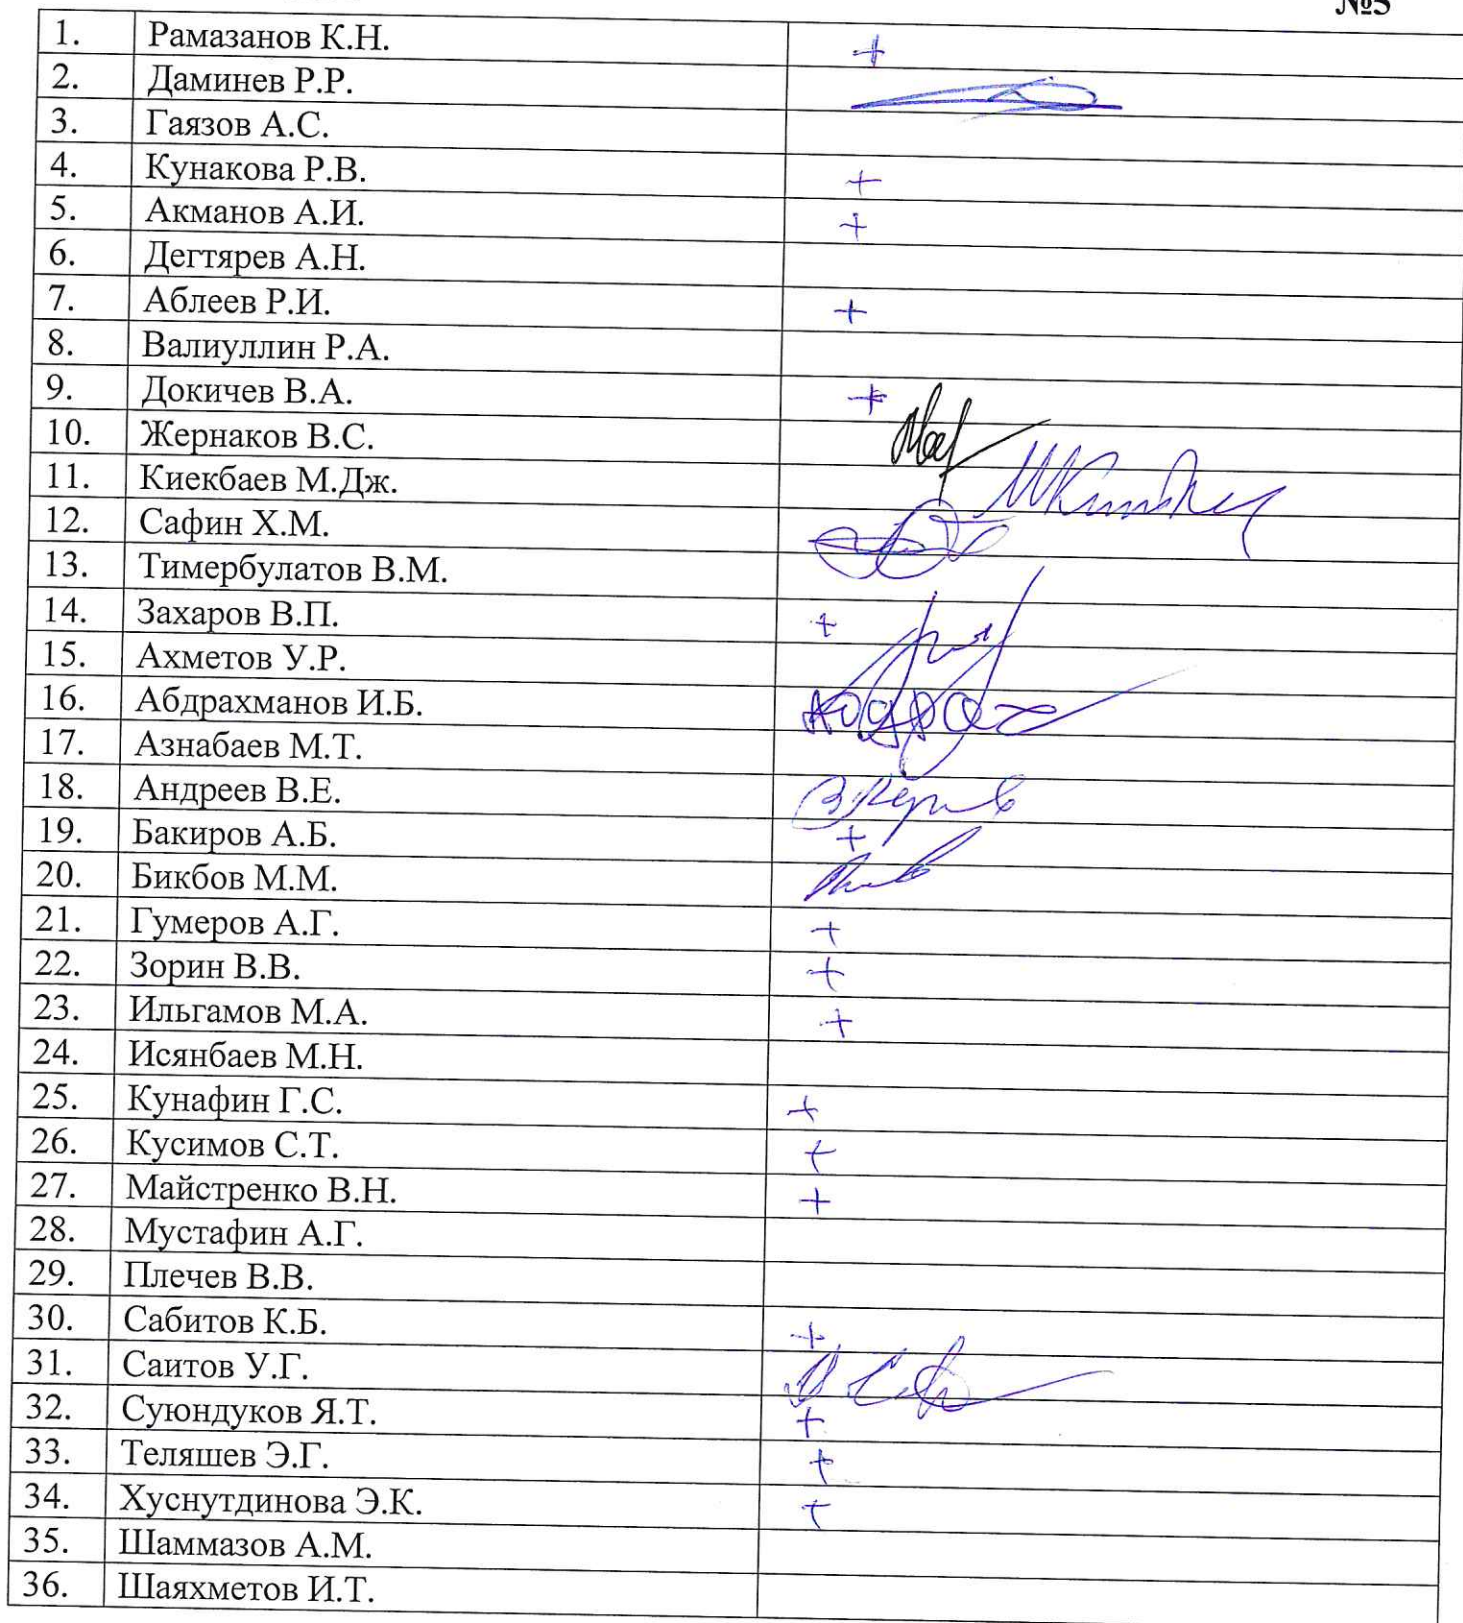 №5
1. Рамазанов К.Н. +
2. Даминев Р.Р.
3. Гаязов А.С.
4. Кунакова Р.В. +
5. Акманов А.И. +
6. Дегтярев А.Н.
7. Аблеев Р.И. +
8. Валиуллин Р.А.
9. Докичев В.А. +
10. Жернаков В.С.
11. Киекбаев М.Дж.
12. Сафин Х.М.
13. Тимербулатов В.М.
14. Захаров В.П. +
15. Ахметов У.Р.
16. Абдрахманов И.Б.
17. Азнабаев М.Т.
18. Андреев В.Е.
19. Бакиров А.Б. +
20. Бикбов М.М.
21. Гумеров А.Г. +
22. Зорин В.В. +
23. Ильгамов М.А. +
24. Исянбаев М.Н.
25. Кунафин Г.С. +
26. Кусимов С.Т. +
27. Майстренко В.Н. +
28. Мустафин А.Г.
29. Плечев В.В.
30. Сабитов К.Б. +
31. Саитов У.Г.
32. Суюндуков Я.Т. +
33. Теляшев Э.Г. +
34. Хуснутдинова Э.К. +
35. Шаммазов А.М.
36. Шаяхметов И.Т.